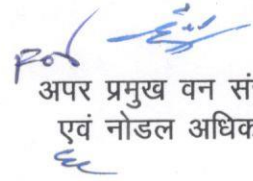 अपर प्रमुख वन सं
एवं नोडल अधिक